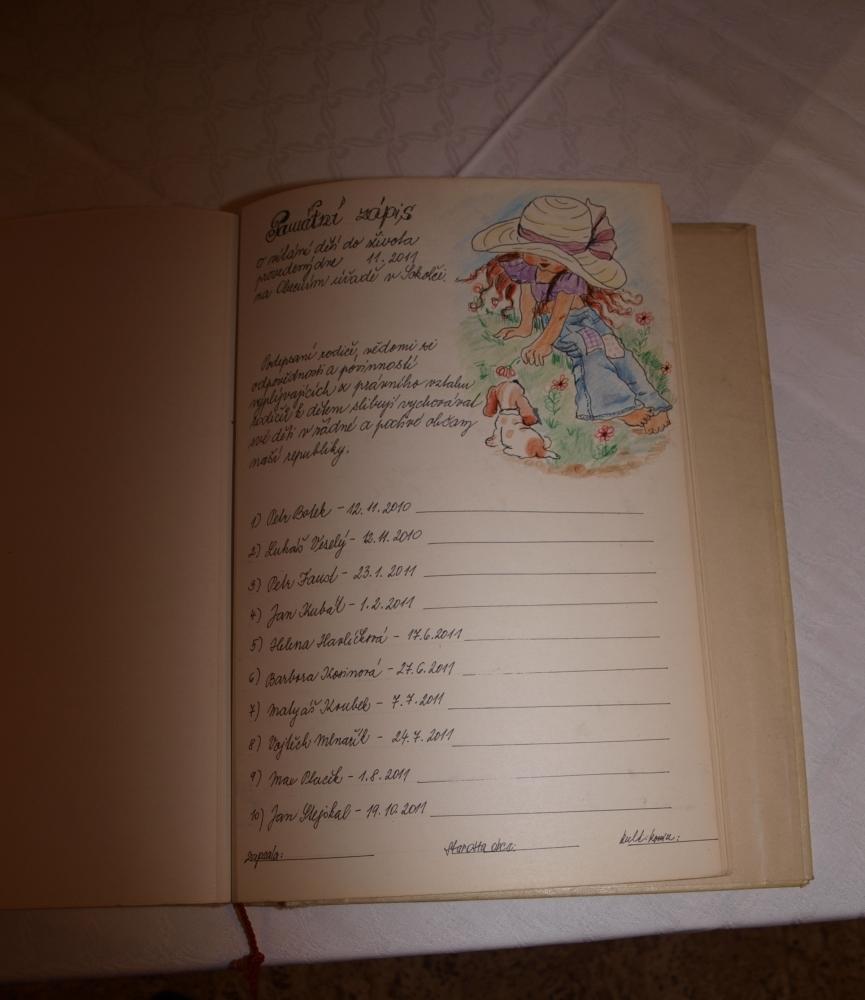 Pamětní zápis
o vítání dětí do života
provedený dne 11. 2011
na Obecním úřadě v Sokolči.
Podepsaní rodiče, vědomi si
odpovědnosti a povinností
vyplývajících z právního vztahu
rodičů k dětem slibují vychovávat
své děti v řádné a poctivé občany
naší republiky.
1) Petr Bolek - 12.11.2010
2) Lukáš Veselý - 12.11.2010
3) Petr Faust - 23.1.2011
4) Jan Kubát - 1.2.2011
5) Helena Havlíčková - 17.6.2011
6) Barbora Kosinová - 27.6.2011
7) Matyáš Koubek - 7.7.2011
8) Vojtěch Mlnařík - 24.7.2011
9) Max Ptacik - 1.8.2011
10) Jan Stejskal - 19.10.2011
zapsala: starosta obce: kult. komise: